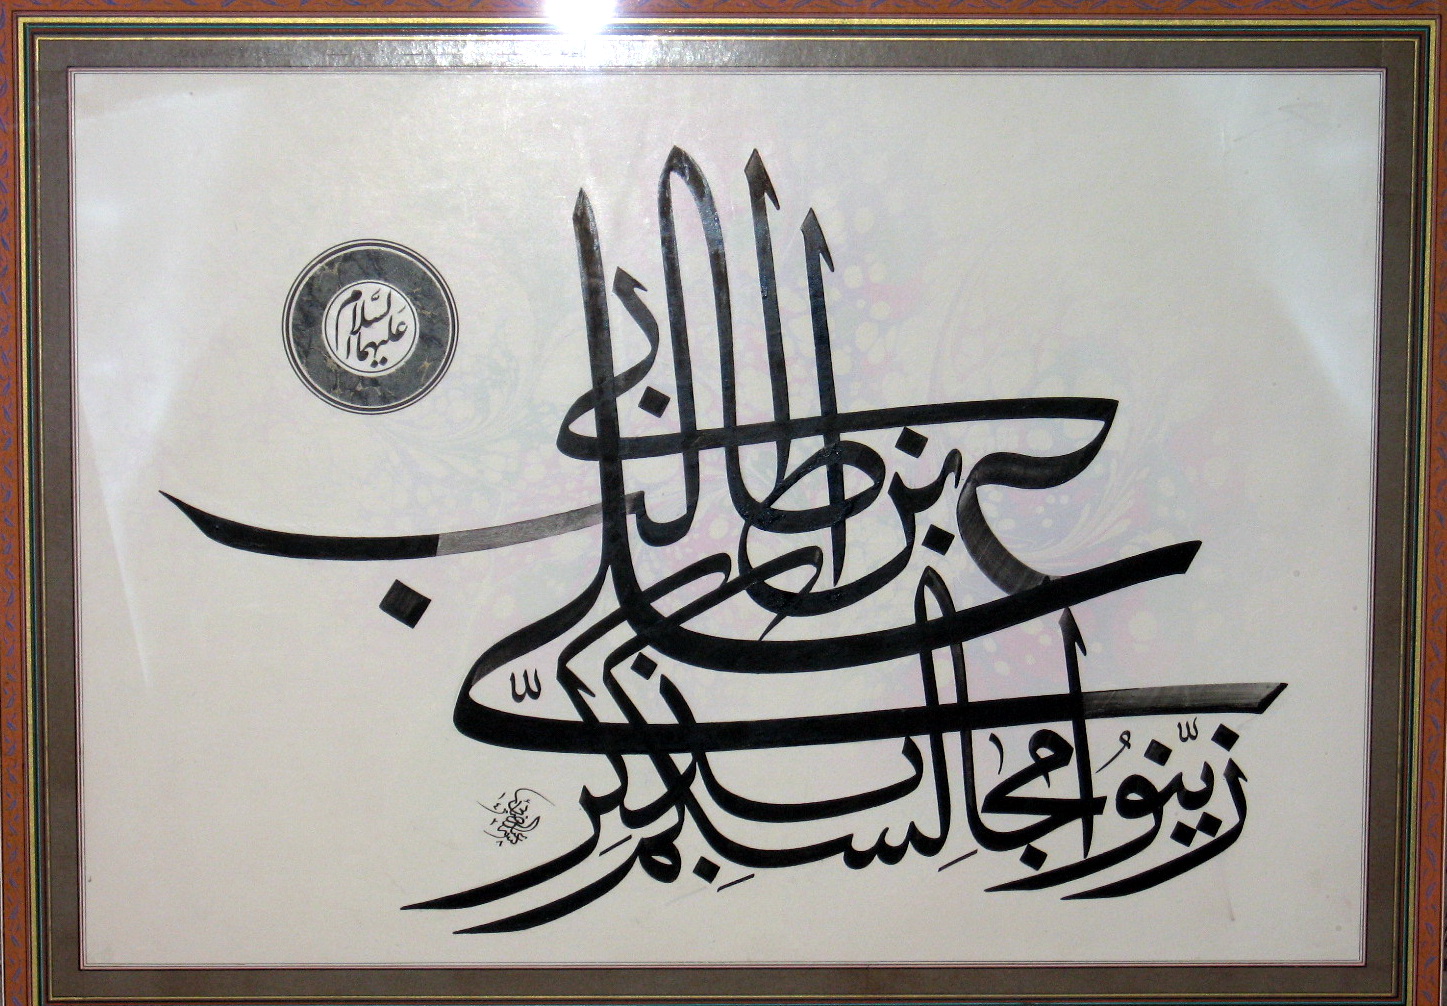 زيّنوُا مجالِسکم بِذکرِ
علیّ بن ابی طالب
عَلیهما السَّلام